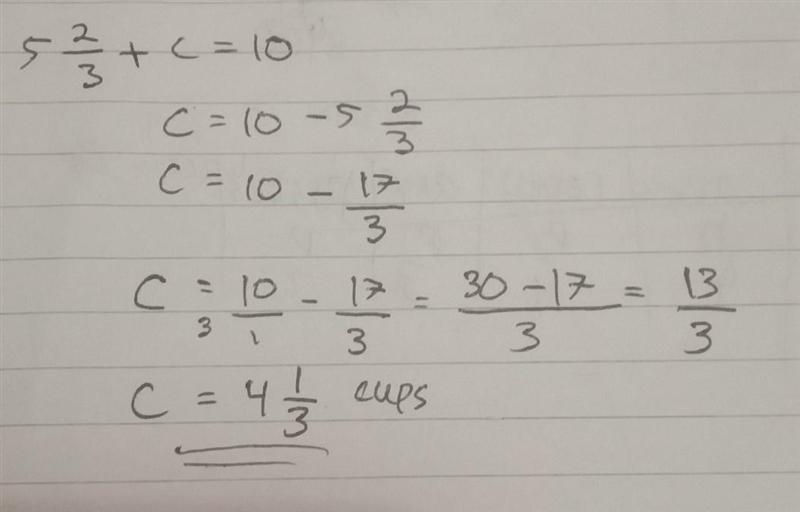 5 2/3 + C = 10
C = 10 - 5 2/3
C = 10 - 17/3
C = 3 10/1 - 17/3 = 30 - 17/3 = 13/3
C = 4 1/3 cups